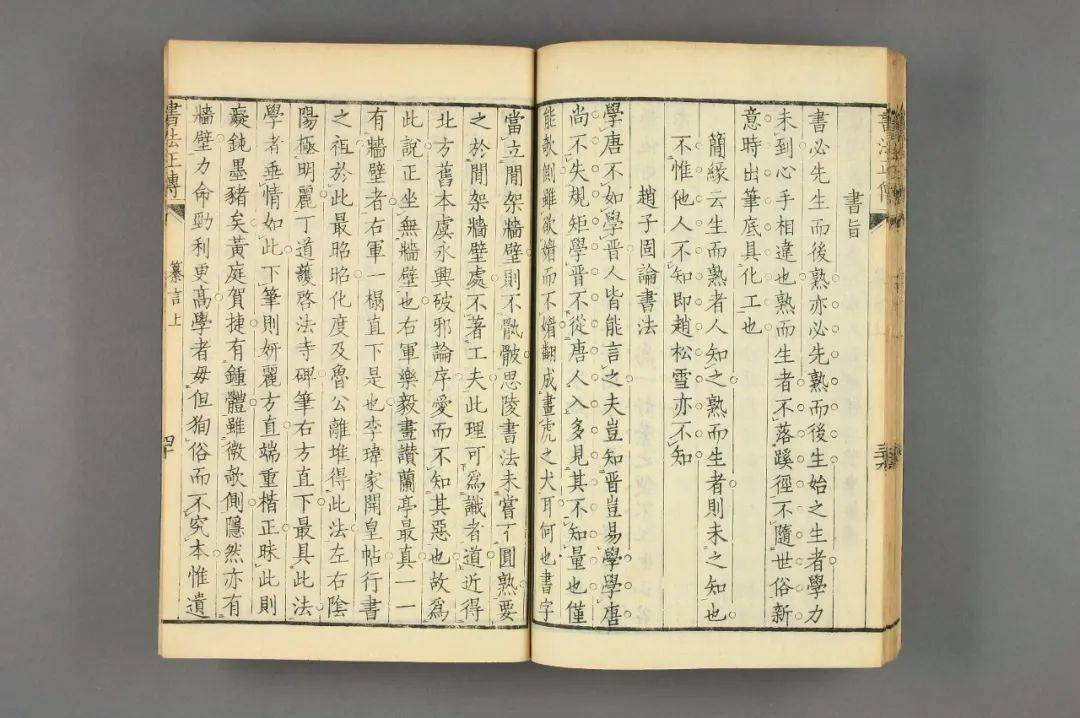 書法正傳
書旨
書必先生而後熟亦必先熟而後生始之生者學力
未到心手相違也熟而生者不落蹊徑不隨世俗新
意時出筆底具化工也
簡緣云生而熟者人知之熟而生者則未之知也
不惟他人不知即趙松雪亦不知
趙子固論書法
學唐不如學晉人皆能言之夫豈知晉豈易學學唐
尚不失規矩學晉不從唐人入多見其不知量也僅
能欹側雖欲媚而不媚翻成畫虎之犬耳何也書字
當立間架牆壁則不骫骳思陵書法未嘗不圓熟要
之於間架牆壁處不著工夫此理可為識者道近得
北方舊本虞永興破邪論序愛而不知其惡也故為
此說正坐無牆壁也右軍樂毅畫讚蘭亭最真一一
有牆壁者右軍一搨直下是也李瑋家開皇帖行書
之祖於此最昭昭化度及魯公離堆得此法左右陰
陽極明麗丁道護啓法寺碑筆右方直下最具此法
學者垂情如此下筆則妍麗方直端重楷正昧此則
癡鈍墨豬矣黃庭賀捷有鍾體雖微欹側隱然亦有
牆壁力命勁利更高學者毋但狥俗而不究本惟遺
書法正傳
纂言上